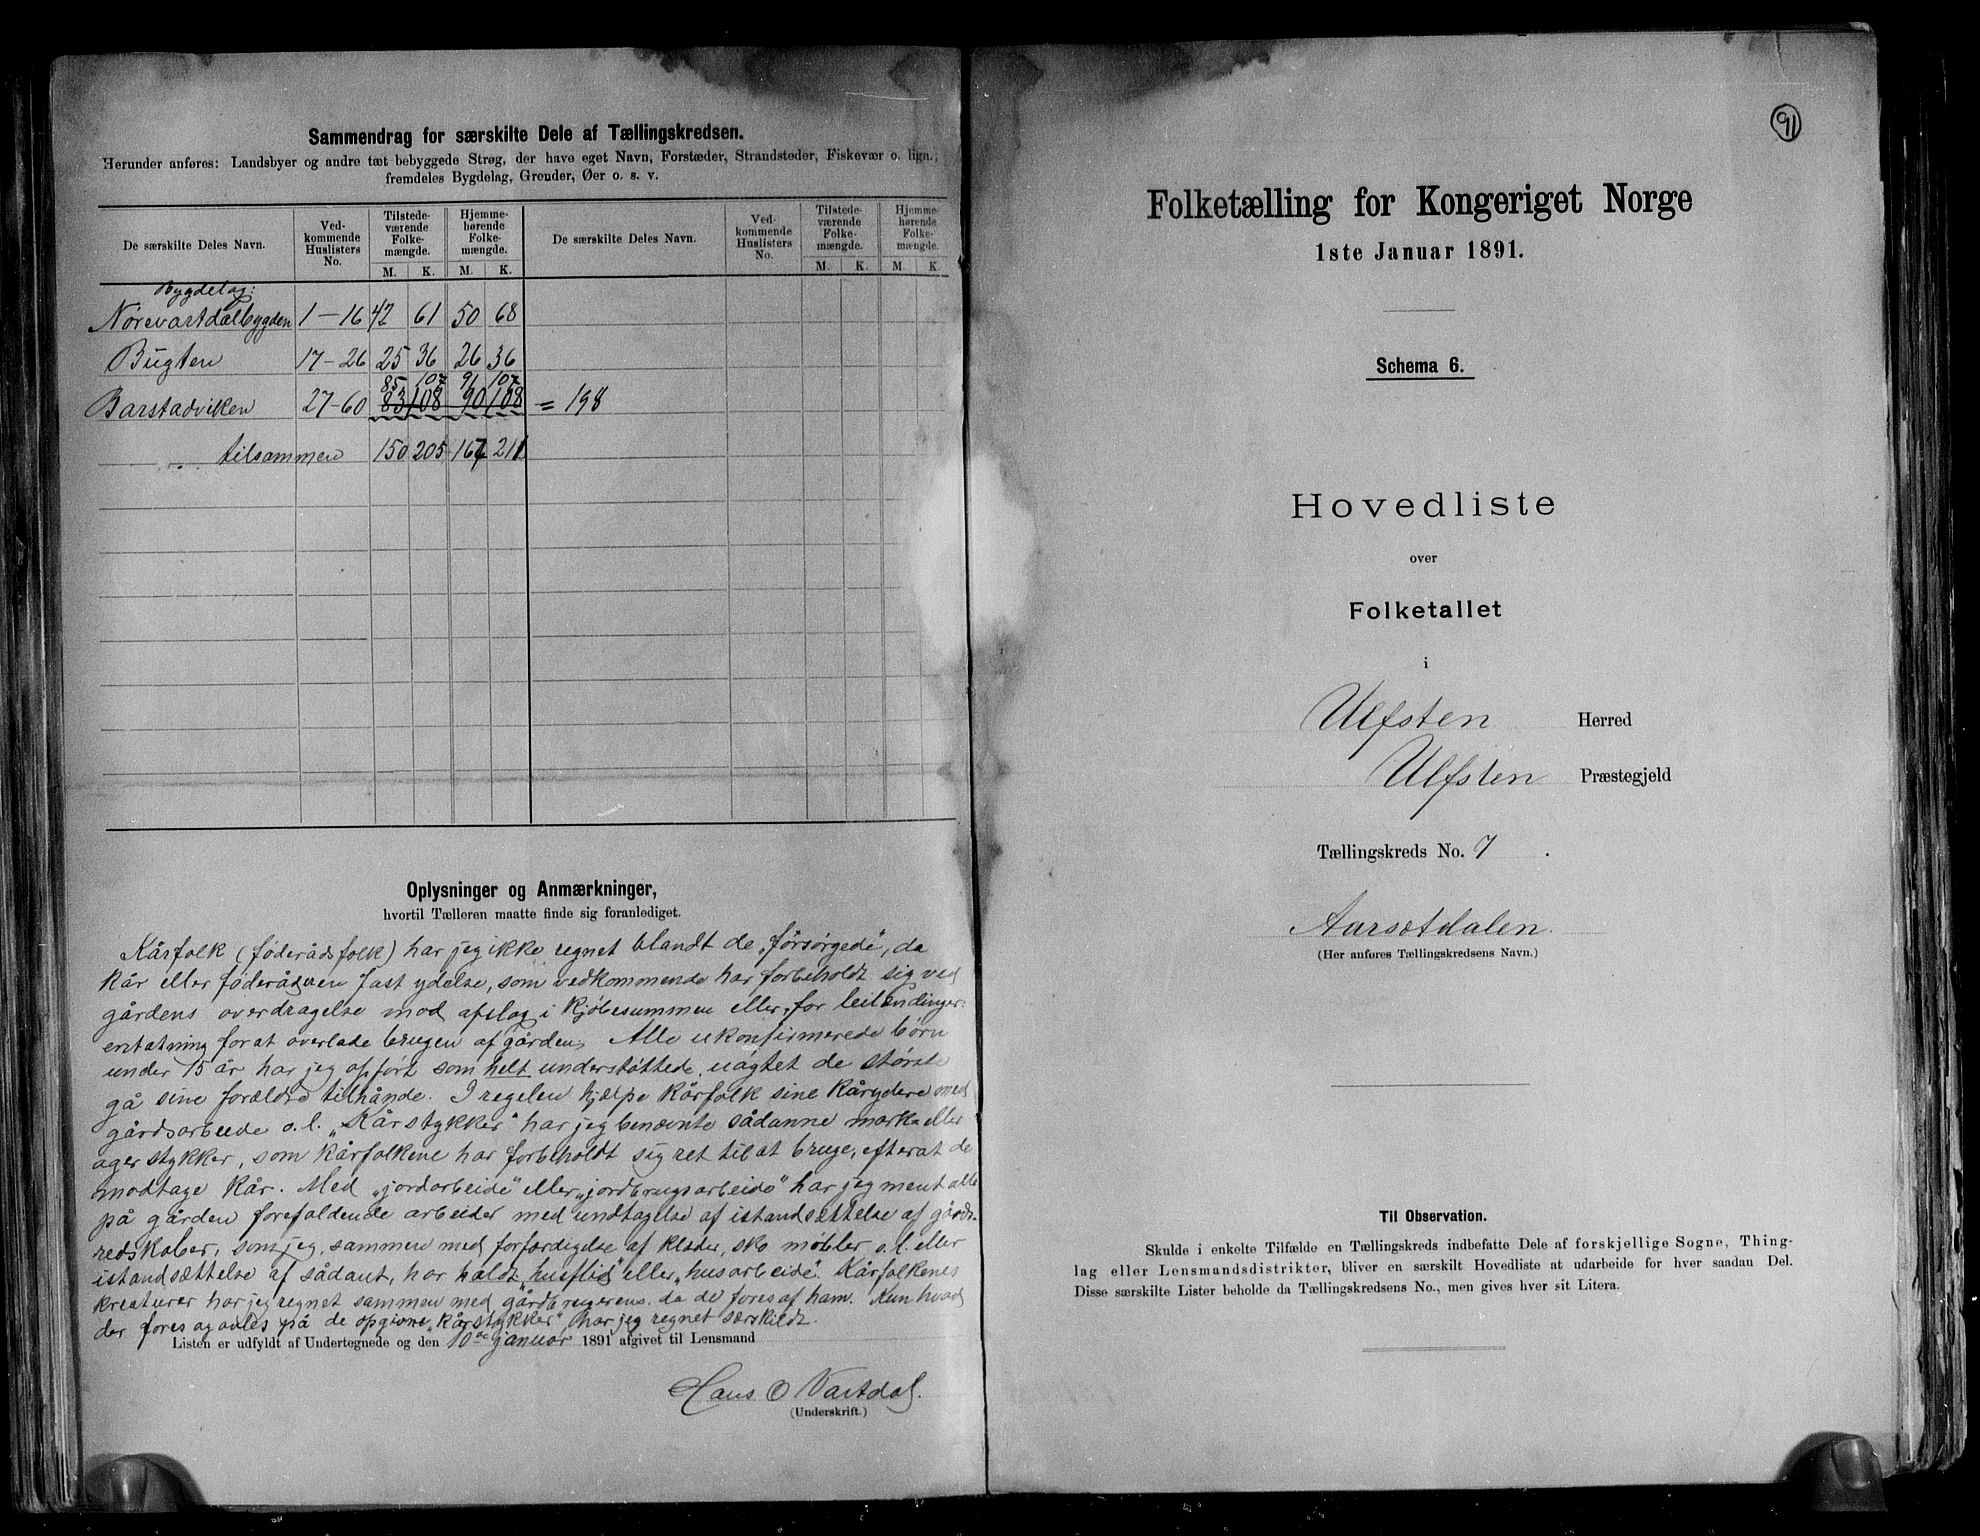 Sammendrag for særskilte Dele af Tællingskredsen.
Herunder anføres: Landsbyer og andre tæt bebyggede Strøg, der have eget Navn, Forstæder, Strandsteder, Fiskevær o. lign.;
fremdeles Bygdelag, Grender, Øer o. s. v.
De særskilte Deles Navn. Ved-kommende Huslisters No. Tilstede-værende Folke-mængde. Hjemme-hørende Folke-mængde. De særskilte Deles Navn. Ved-kommende Huslisters No. Tilstede-værende Folke-mængde. Hjemme-hørende Folke-mængde.
M. K. M. K. M. K. M. K.
Bygdelag:
Nørevartdalbygden 1-16 42 61 50 68
Bugten 17-26 25 36 26 36
85 107 91 107
Barstadviken 27-60 83 108 90 108 = 198
tilsammen 150 205 167 211
Oplysninger og Anmærkninger,
hvortil Tælleren maatte finde sig foranlediget.
Kårfolk (føderådsfolk) har jeg ikke regnet blandt de „forsørgede", da
kår eller føderåd er en fast ydelse, som vedkommende har forbeholdt sig ved
gårdens overdragelse mod afslag i kjøbesummen eller for leilændinger:
erstatning for at overlade brugen af gården. Alle ukonfirmerede børn
under 15 år har jeg opført som helt understøttede, uagtet de største
gå sine forældre tilhånde. I regelen hjælpe kårfolk sine kårydere med
gårdsarbeide o.l. „Kårstykker" har jeg benævnte sådanne mark eller
agerstykker, som kårfolkene har forbeholdt sig ret til at bruge, efterat de
modtage kår. Med „jordarbeide" eller „jordbrugsarbeide" har jeg ment alle
på gården forefaldende arbeider med undtagelse af istandsættelse af gårds-
redskaber, som jeg, sammen med forfærdigelse af klæder, sko møbler o.l. eller
istandsættelse af sådant, har kaldt „husflid" eller „husarbeide". Kårfolkenes
kreaturer har jeg regnet sammen med gårdbrugerens, da de fores af ham. Kun hvad
der fores og avles på de opgivne „kårstykker" har jeg regnet særskildt.
Listen er udfyldt af Undertegnede og den 10de januar 1891 afgivet til Lensmand
Hans O Vartdal.
(Underskrift.)
91
Folketælling for Kongeriget Norge
1ste Januar 1891.
Schema 6.
Hovedliste
over
Folketallet
i
Ulfsten Herred
Ulfsten Præstegjeld
Tællingskreds No. 7.
Aarsætdalen.
(Her anføres Tællingskredsens Navn.)
Til Observation.
Skulde i enkelte Tilfælde en Tællingskreds indbefatte Dele af forskjellige Sogne, Thing-
lag eller Lensmandsdistrikter, bliver en særskilt Hovedliste at udarbeide for hver saadan Del.
Disse særskilte Lister beholde da Tællingskredsens No., men gives hver sit Litera.